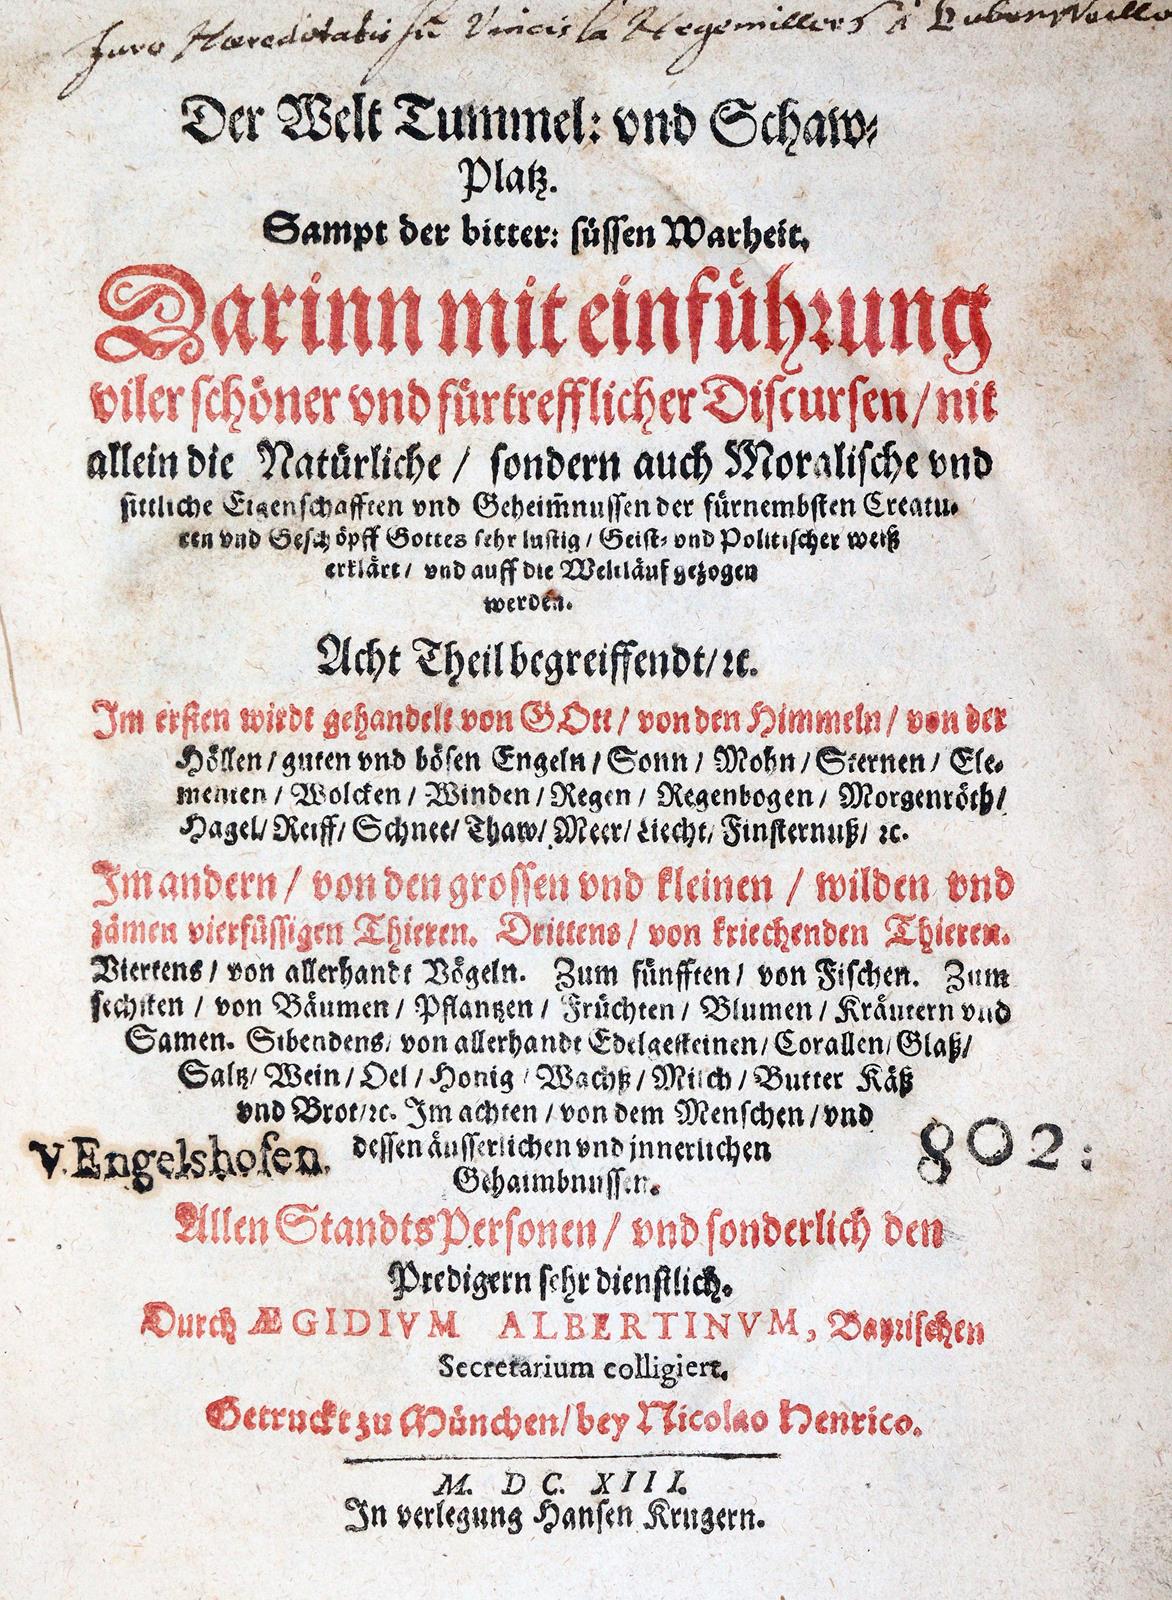 Juro Hæreditatis sū Vincisla Hegemillers à
Der Welt Tummel: vnd Schaw⸗
Platz.
Sampt der bitter: süssen Warheit.
Darinn mit einführung
viler schöner vnd fürtrefflicher Discursen / nit
allein die Natürliche / sondern auch Moralische vnd
sittliche Eigenschafften vnd Geheim̃nussen der fürnembsten Creatu⸗
ren vnd Geschöpff Gottes sehr lustig / Geist⸗ vnd Politischer weiß
erklärt / vnd auff die Weltläuf gezogen
werden.
Acht Theil begreiffendt / ꝛc.
Im ersten wirdt gehandelt von GOtt / von den Himmeln / von der
Höllen / guten vnd bösen Engeln / Sonn / Mohn / Sternen / Ele⸗
menten / Wolcken / Winden / Regen / Regenbogen / Morgenröth /
Hagel / Reiff / Schnee / Thaw / Meer / Liecht / Finsternuß / ꝛc.
Im andern / von den grossen vnd kleinen / wilden vnd
zämen vierfüssigen Thieren. Drittens / von kriechenden Thieren.
Viertens / von allerhandt Vögeln. Zum fünfften / von Fischen. Zum
sechsten / von Bäumen / Pflantzen / Früchten / Blumen / Kräutern vnd
Samen. Sibendens / von allerhandt Edelgesteinen / Corallen / Glaß /
Saltz / Wein / Oel / Honig / Wachß / Milch / Butter Käß
vnd Brot / ꝛc. Im achten / von dem Menschen / vnd
dessen äusserlichen vnd innerlichen
Gehaimbnussen.
V. Engelshofen.
802:
Allen Standts Personen / vnd sonderlich den
Predigern sehr dienstlich.
Durch ÆGIDIVM ALBERTINVM, Bayrischen
Secretarium colligiert.
Getruckt zu München / bey Nicolao Henrico.
M. D C. XIII.
In verlegung Hansen Krugern.